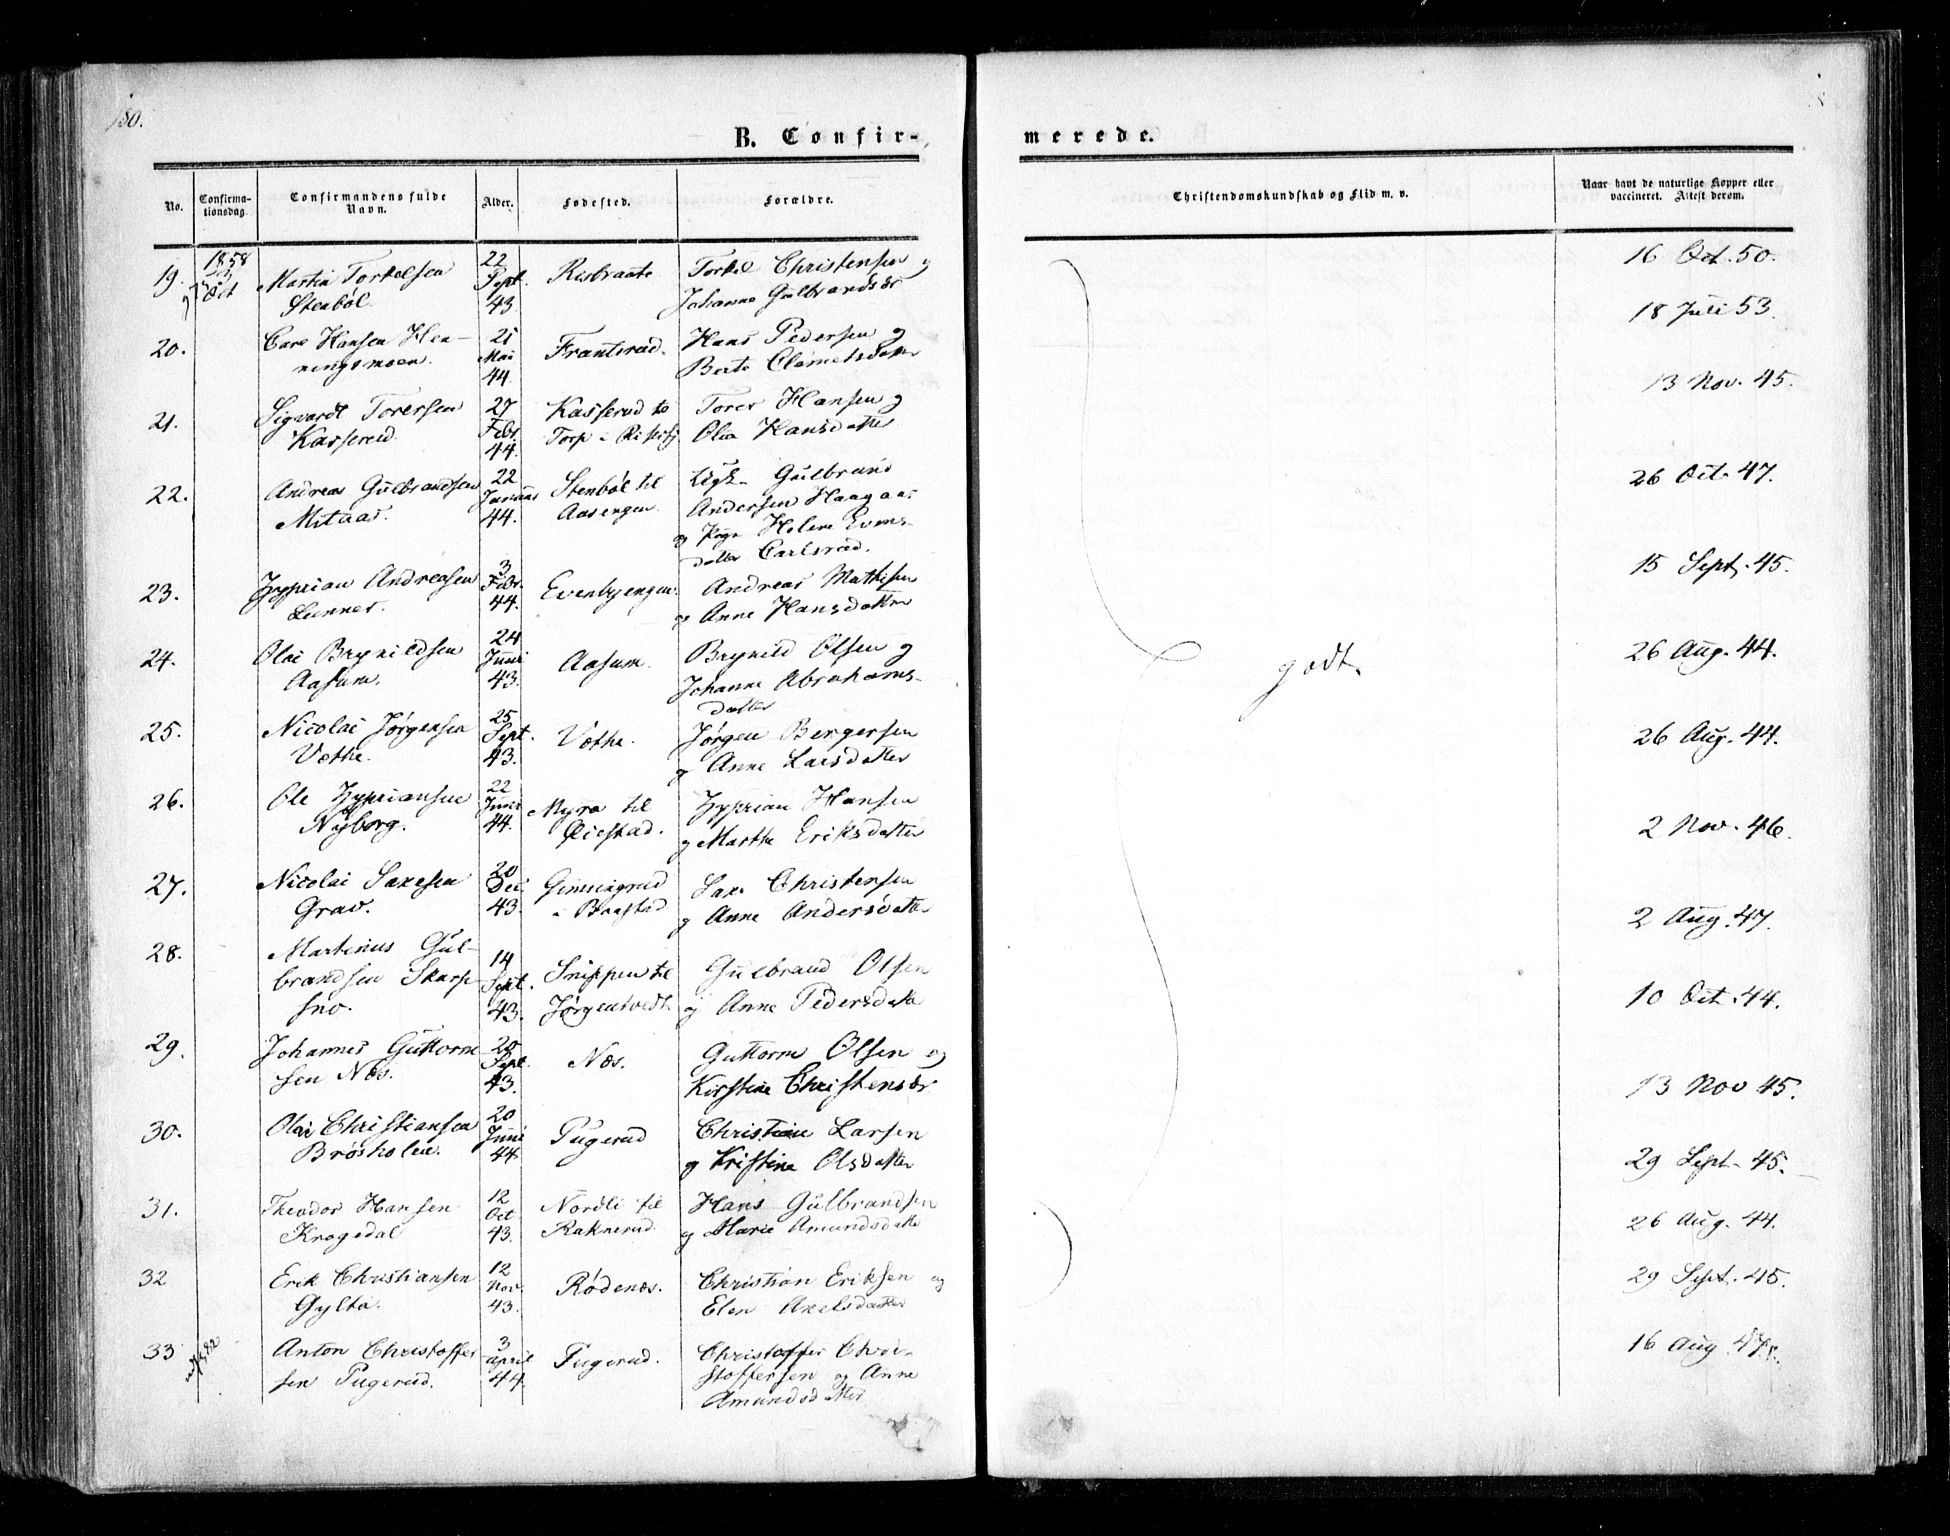 180.
B. Confir-
merede.
No.
Confirma-
tionsdag
Confirmandens fulde
Navn.
Alder.
Fødested.
Forældre.
Christendomskundskab og Flid m. v.
Naar havt de naturlige Kopper eller
vaccineret. Attest derom.
19. 1858 3 Oct Martin Torkelsen Stenböl. 22 Sept. 43. Risbraate Torkel Christensen og Johanne Gulbrandsdr 16 Oct. 50.
20. Hansen Hen-
ningsmoen. 21 Mai 44. Frantsrud. Hans Pedersen og
Berte Clemetsdatter 18 Juli 53.
21. Sigvardt Torersen
Kasserud. 27 Febr. 44. Kasserud til
Torp i Torer Hansen og
Olia Hansdatter 13 Nov. 45.
22. Andreas Gulbrandsen
22 Januar 44. Stenböl til
Aasengen. Gulbrand
Andersen Haagaas
og Pige Helene Evens-
datter Carlsrud. 26 Oct. 47.
23. Zyprian Andreasen
Lunner. 3 Febr. 44. Evenbyengen. Andreas Mathisen
og Anne Hansdatter 15 Sept. 45.
24. Olai Brynildsen
Aasum. 24 Juni 43. Aasum. Brynild Olsen og
Johanne Abrahams-
datter godt. 26 Aug. 44.
25. Nicolai Jörgensen
Væthe. 25 Sept. 43. Væthe. Jörgen Bergersen
og Anne Larsdatter 26 Aug. 44.
26. Ole Zypriansen
Nyborg. 22 Juni 44. Myra til
Öiestad. Zyprian Hansen
og Marthe Eriksdatter 2 Nov. 46.
27. Nicolai Saxesen
Grav. 20 Dec. 43. Gunningrud
i Baastad Saxe Christensen
og Anne Andersdatter 2 Aug. 47.
28. Martinus Gul-
brandsen Skarp-
sno. 14 Sept. 43. Snippen til
Jörgentvedt. Gulbrand Olsen
og Anne Pedersdatter 10 Oct. 44.
29. Johannes Guttorm-
sen Næs. 20 Sept. 43. Næs. Guttorm Olsen og
Kirstine Christensdr 13 Nov 45.
30. Olai Christiansen
Brösholen. 20 Juni 44. Pugerud Christian Larsen
og Kristine Olsdatter 29 Sept. 45.
31. Theodor Hansen
Krogedal 12 Oct. 43. Nordli til
Raknerud. Hans Gulbrandsen
og Marie Amundsdatter 26 Aug. 44.
32 Erik Christiansen
Gylta. 12 Nov. 43. Rödenæs. Christian Eriksen og
Elen Axelsdatter 29 Sept. 45.
33 Anton Christoffer-
sen Pugerud. 3 april 44. Pugerud. Christoffer Chri-
stoffersen og Anne
Amundsdatter 16 Aug. 47.